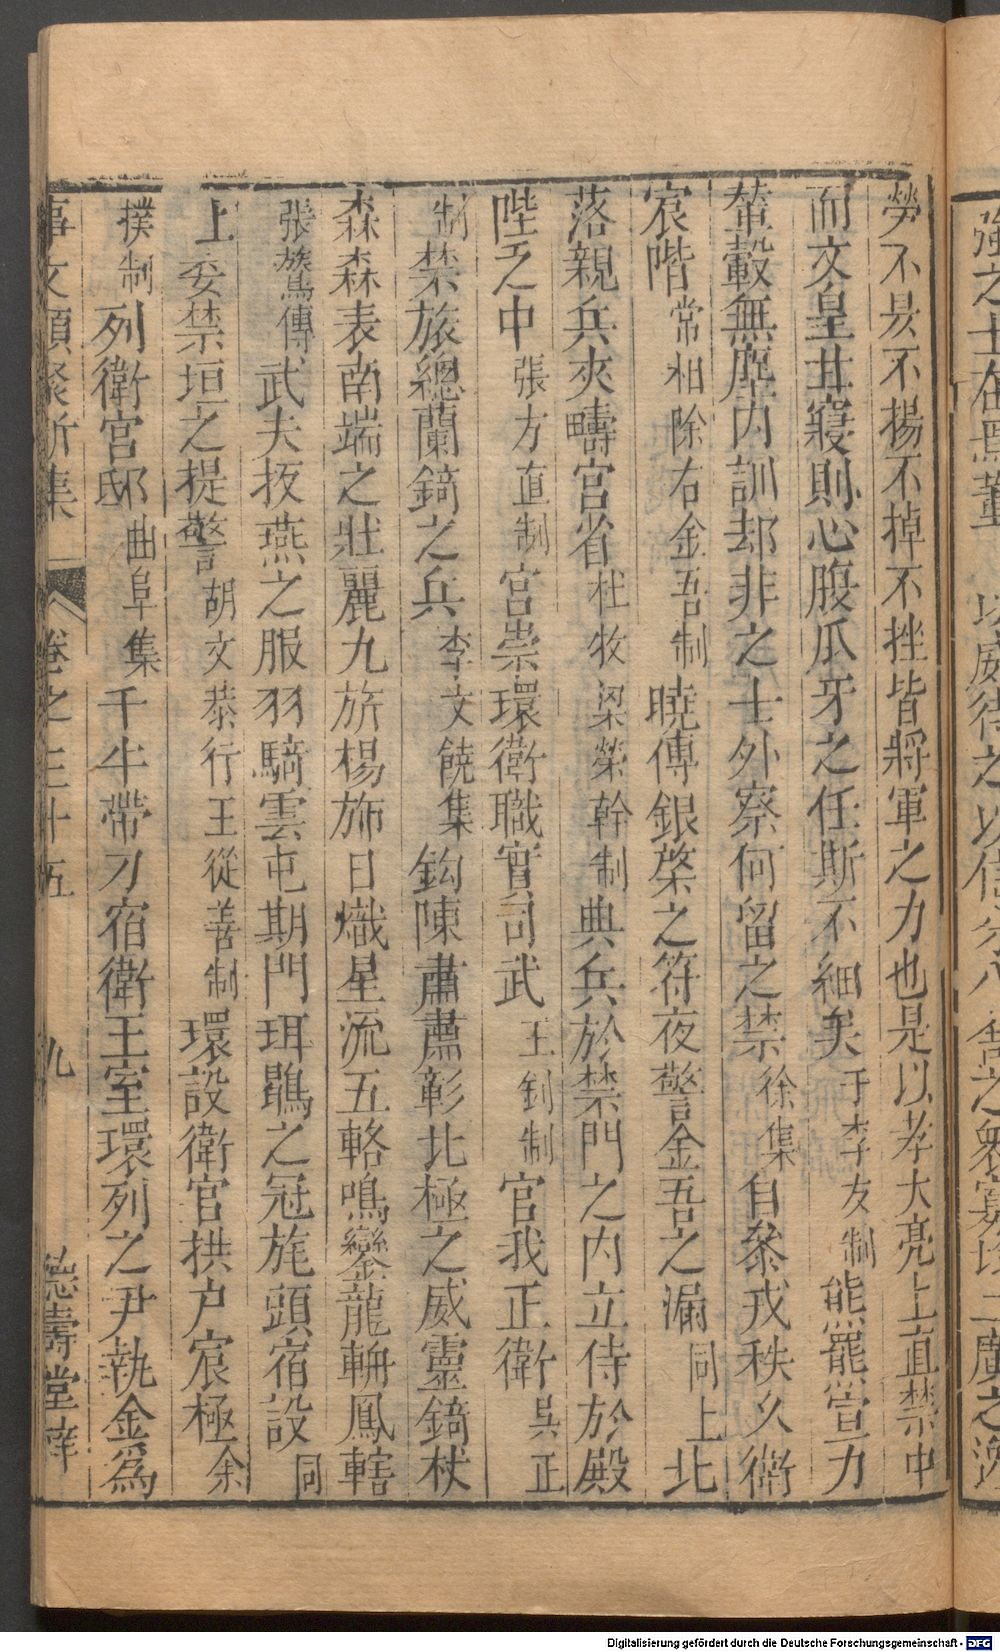 勞不㬎不揚不掉不挫皆將軍之力也是以孝大亮上直禁中
而文皇甘寢則心腹瓜牙之任斯不細矣于李友制熊羆宣力
輦轂無塵内訓却非之士外察何留之禁徐集自叅戎秩久衛
宸階常相除右金吾制曉傳銀棨之符夜警金吾之漏同上北
落親兵夾疇宮省杜牧梁榮幹制典兵於禁門之内立侍於殿
陛之中張方直制宮崇環衛職實司武王釗制官我正衛呉正
制禁旅總蘭錡之兵李文饒集鈎陳肅肅彰北極之威靈錡杖
森森表南端之壯麗九旂楊斾日熾星流五輅鳴鑾龍輧鳳轄
張鷟傳武夫扳燕之服羽騎雲屯期門珥鶡之冠旄頭宿設同
上委禁垣之提警胡文恭行王從善制環設衛官拱户宸極余
撲制列衛宮邸曲阜集千牛帶刀宿衛王室環列之尹執金爲
事文類聚新集 卷之三十五 九 德壽堂梓
以威待之以信
Digitalisierung gefördert durch die Deutsche Forschungsgemeinschaft - DFG